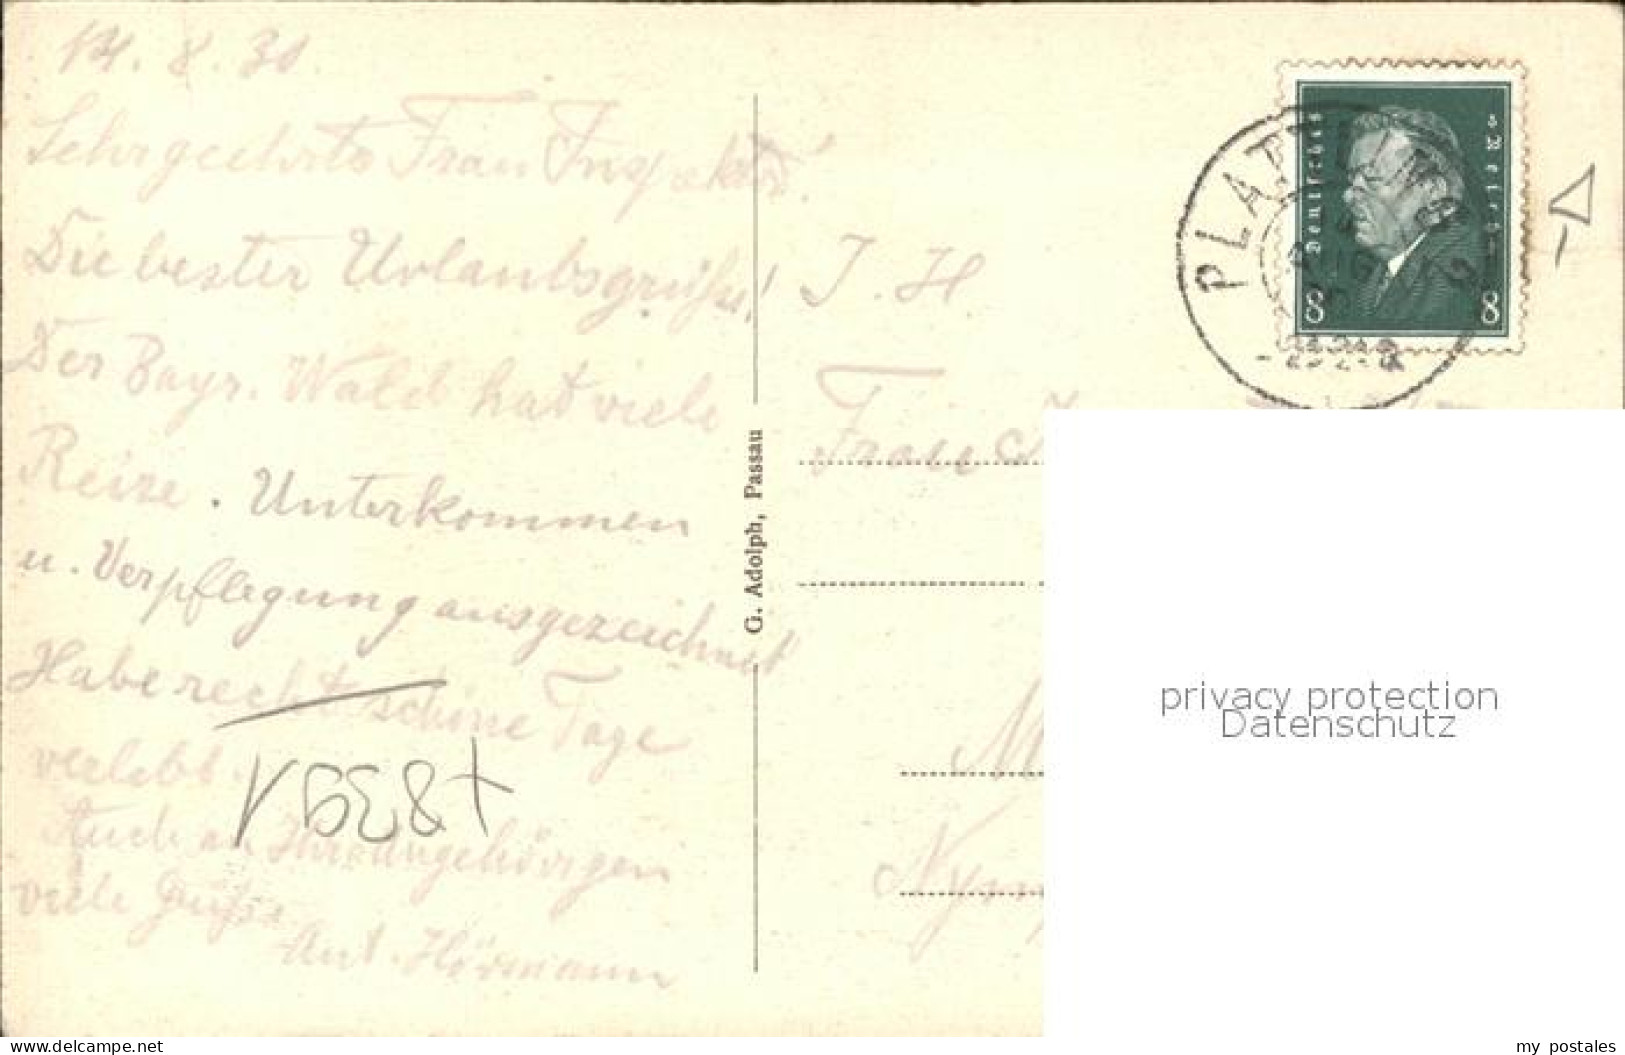 14. 8. 30.
Sehrgeehrte Frau Inspektor!
Die besten Urlaubsgrüße!
Der Bayr. Wald hat viele
Reize. Unterkommen
u. Verpflegung ausgezeichnet
Habe recht schöne Tage
verlebt.
Auch an Ihre Angehörigen
viele Grüße
Ant. Hörmann
G. Adolph, Passau
I. H
Frau
M
Nym
PLATTLING
Deutsches Reich
8 8
privacy protection
Datenschutz
www.delcampe.net
my_postales